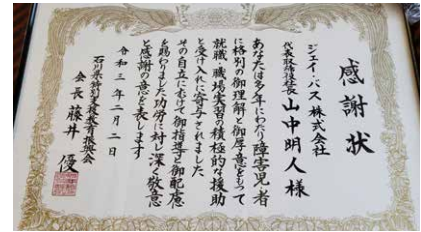 感謝状
ジェイ・バス株式会社
代表取締役社長 山中明人様
あなたは多年にわたり障害児者
に格別の御理解と御厚意をもって
就職・職場実習の積極的な援助
と受け入れに寄与されました
その自立にむけて御指導と御配慮
を賜りました功労に対し深く敬意
と感謝の意を表します
令和三年二月二日
石川県特別支援教育振興会
会長 藤井 優